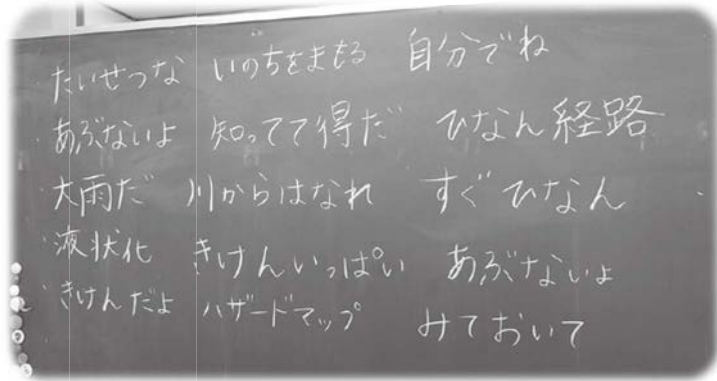 たいせつな いのちをまもる 自分でね
あぶないよ 知ってて得だ ひなん経路
大雨だ 川からはなれ すぐひなん
液状化 きけんいっぱい あぶないよ
きけんだよ ハザードマップ みておいて